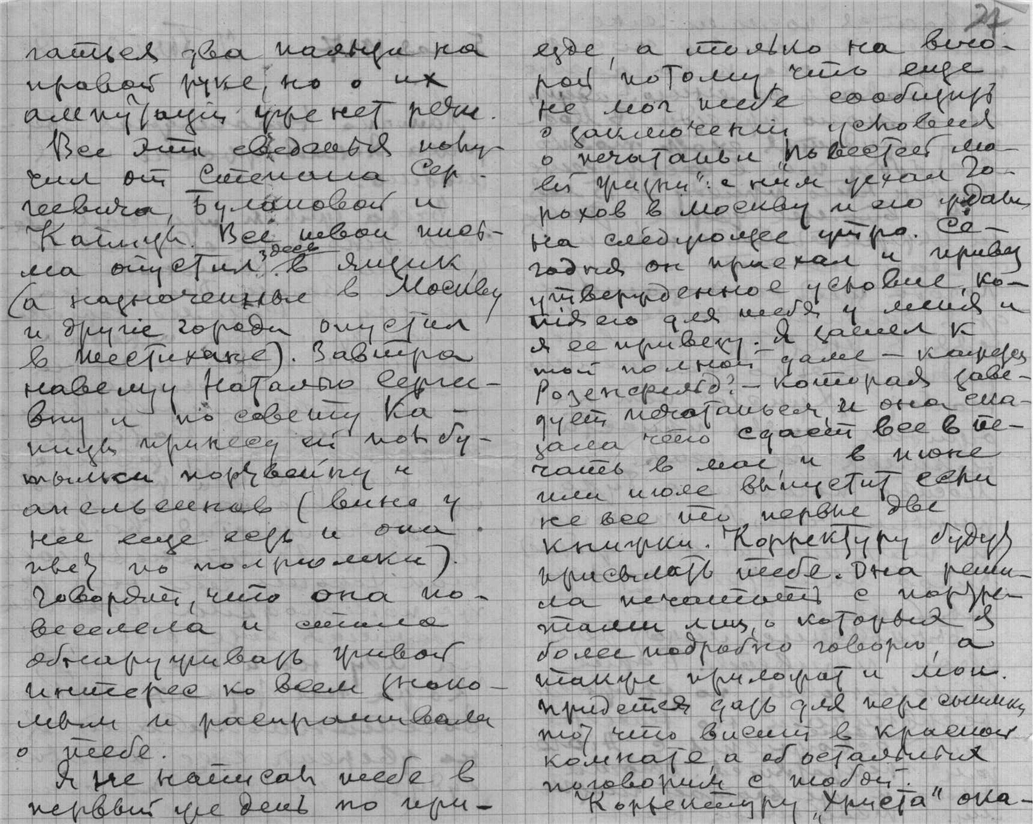 27
гаться два пальца на
правой руке, но о их
ампутаціи уже нет речи.
Все эти сведенья полу-
чил от Степана Сер-
геевича, Булановой и
Катицы. Все твои пись-
ма опустил здесь в ящик,
(а назначенные в Москву
и другіе города опустил
в шестихане). Завтра
навещу Наталью Серге-
вну и по совету Ка-
тицы принесу ей пол бу-
тылки портвейну и
апельсинов (вино у
нее еще есть и она
пьет по полрюмки).
Говорят, что она по-
веселела и стала
обнаруживать живой
интерес ко всем знако-
мым и распрашивала
о тебе.
Я не написал тебе в
первый же день по при-
езде, а только на вто-
рой, потому что еще
не мог тебе сообщить
о заключеніи условия
о печатаньи „Повестей мо-
ей жизни": с ним уехал Го-
рохов в Москву и его ждали
на следующее утро. Се-
годня он приехал и привез
утвержденное условие, ко-
пія его для тебя у меня и
я ее привезу. Я зашел к
той полной даме – кажется
Розенфельд? – которая заве-
дует печатаньем и она ска-
зала что сдает все в пе-
чать в мае, и в июне
или июле выпустит если
не все то первые две
книжки. Корректуру будут
присылать тебе. Она реши-
ла печатать с портре-
тами лиц, о которых я
более подробно говорю, а
также приложат и мои.
Придется дать для пересъемки
тот что висит в красной
комнате а об остальных
поговорим с тобой.
Корректуру „Христа" ока-